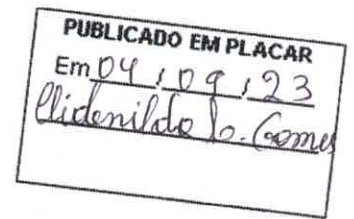 PUBLICADO EM PLACAR
Em 04 / 09 / 23
Clidenildo S. Gomes